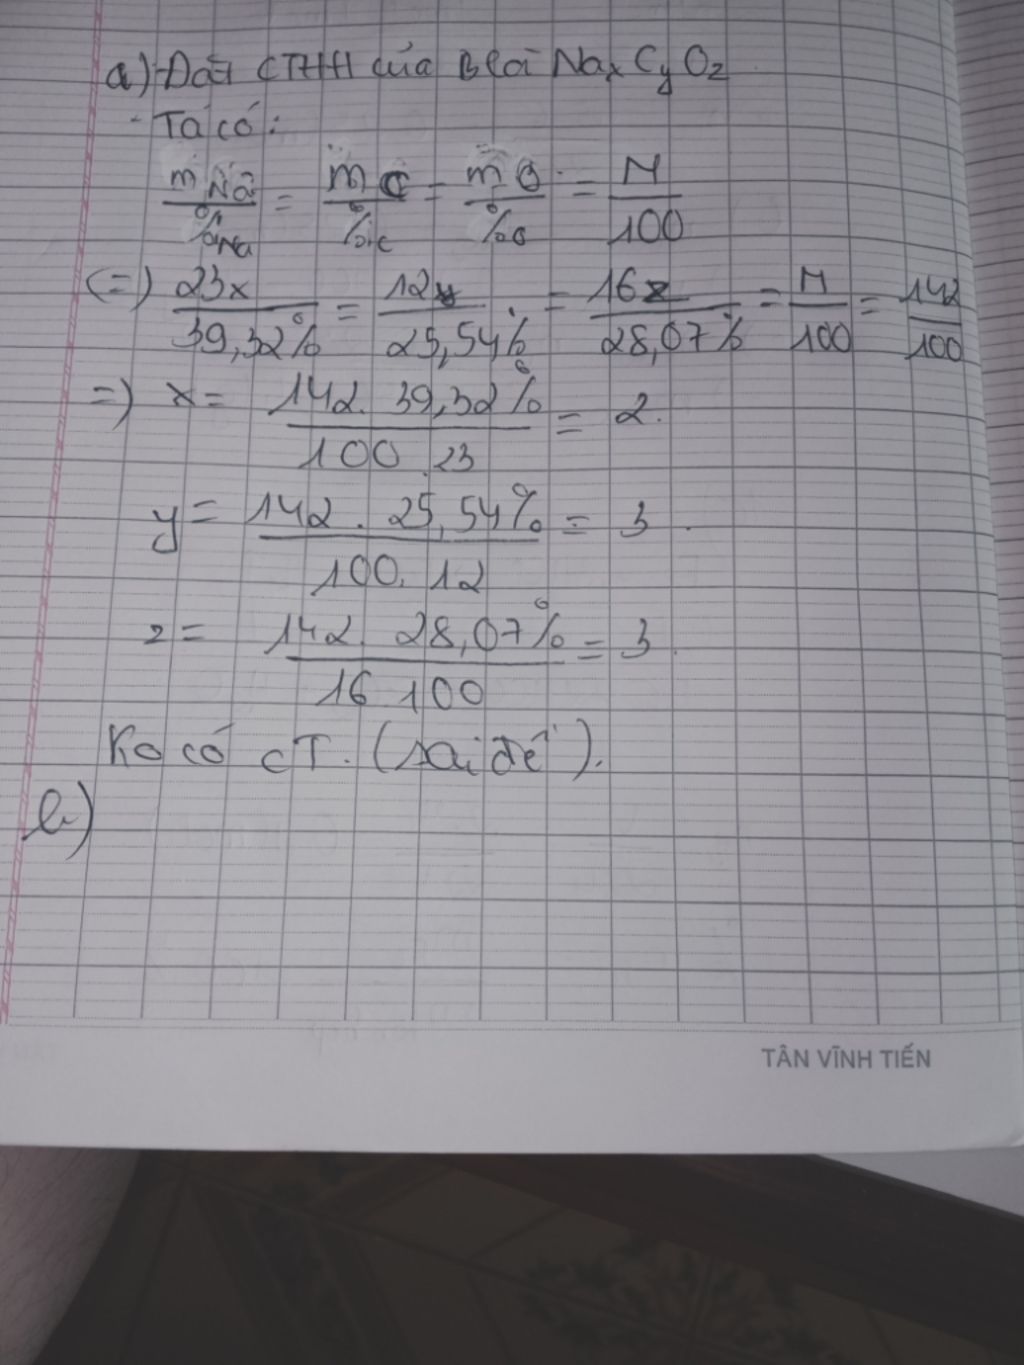 a) Đặt CTHH của B là Na_xC_yO_z
- Ta có:
mNa/%mNa = mC/%mC = mO/%mO = M/100
(=) 23x/39,32% = 12y/25,54% = 16z/28,07% = M/100 = 142/100
=) x = 142. 39,32%/100.23 = 2.
y = 142. 25,54%/100.12 = 3.
z = 142. 28,07%/16 100 = 3.
Ko có CT. (sai đề).
b)
TÂN VĨNH TIẾN